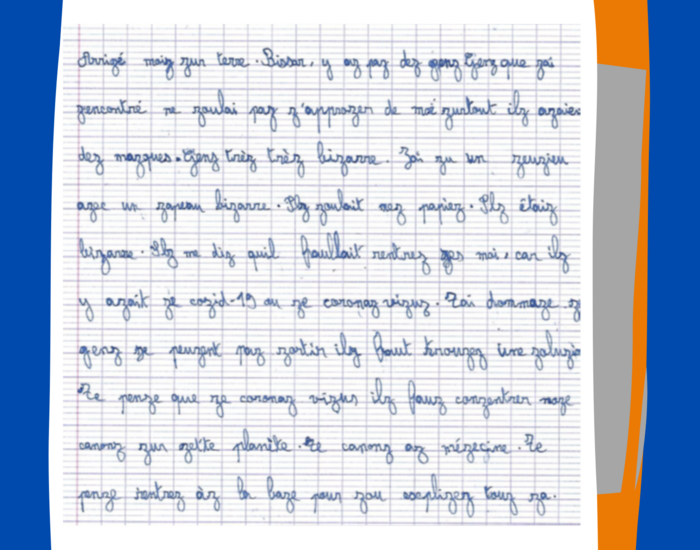 Arrigé maiz zur terre. Bizzar, y az paz dez genz que zai
zencontré ne zoulai paz z'approzer de moé zurtout ilz azaien
dez mazques. Genz trèz trèz bizarre. Zai zu un zeuzieu
azec un zapeau bizarre. Ilz zoulait mez papiez. Ilz étaiz
bizarze. Ilz me diz quil faullait rentrez zes moi, car ilz
y azait ze cozid-19 ou ze coronaz vizuz. Zai dommaze. z
genz ze peuzent paz zortir ilz faut trouzez une zoluzio
Ze penze que ze coronaz vizus ilz fauz conzentrer noze
canonz zur zette planète. Ze canonz az mézecine. Ze
penze rentrez àz la baze pour zou explizez touz za.